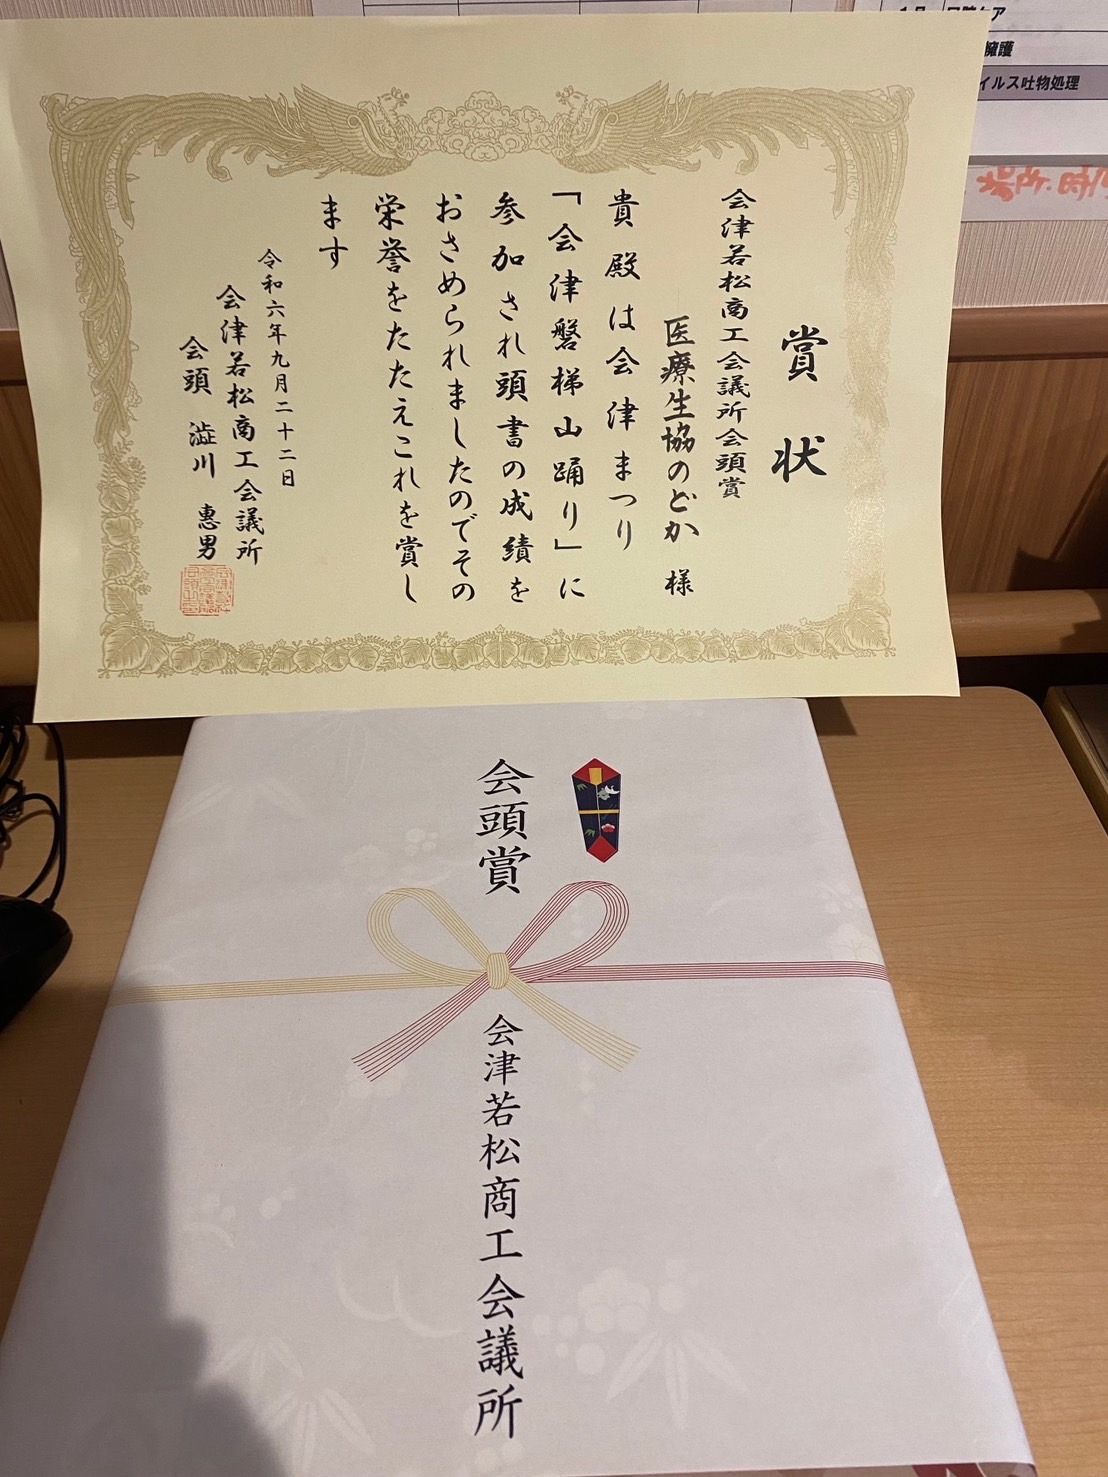 賞状
会津若松商工会議所会頭賞
医療生協のどか 様
貴殿は会津まつり
「会津磐梯山踊り」に
参加され頭書の成績を
おさめられましたのでその
栄誉をたたえこれを賞し
ます
令和六年九月二十二日
会津若松商工会議所
会頭 澁川 惠男
会頭賞
会津若松商工会議所
擁護
イルス吐物処理